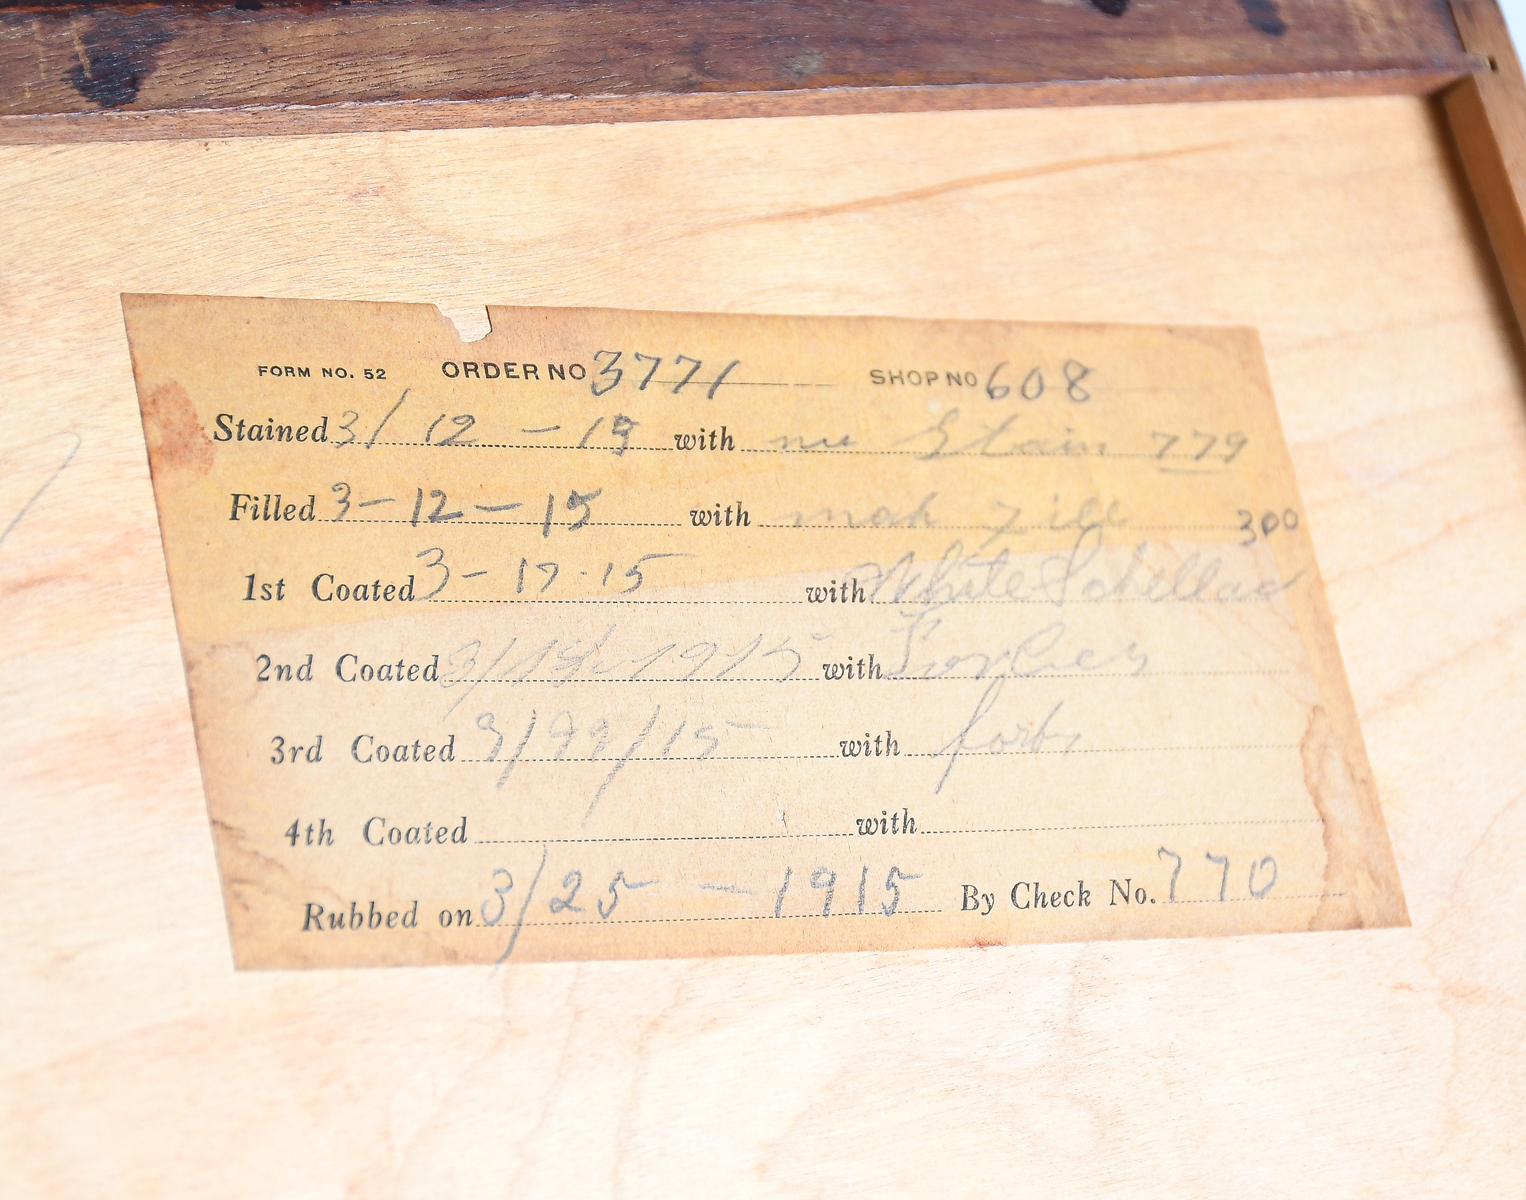 FORM NO. 52 ORDER NO 3771 SHOP NO 608
Stained 3/12-15 with Stain 779
Filled 3-12-15 with mah fill 300
1st Coated 3-17-15 with White Schellac
2nd Coated 3/ 1915 with
3rd Coated /15 with
4th Coated with
Rubbed on 3/25-1915 By Check No. 770